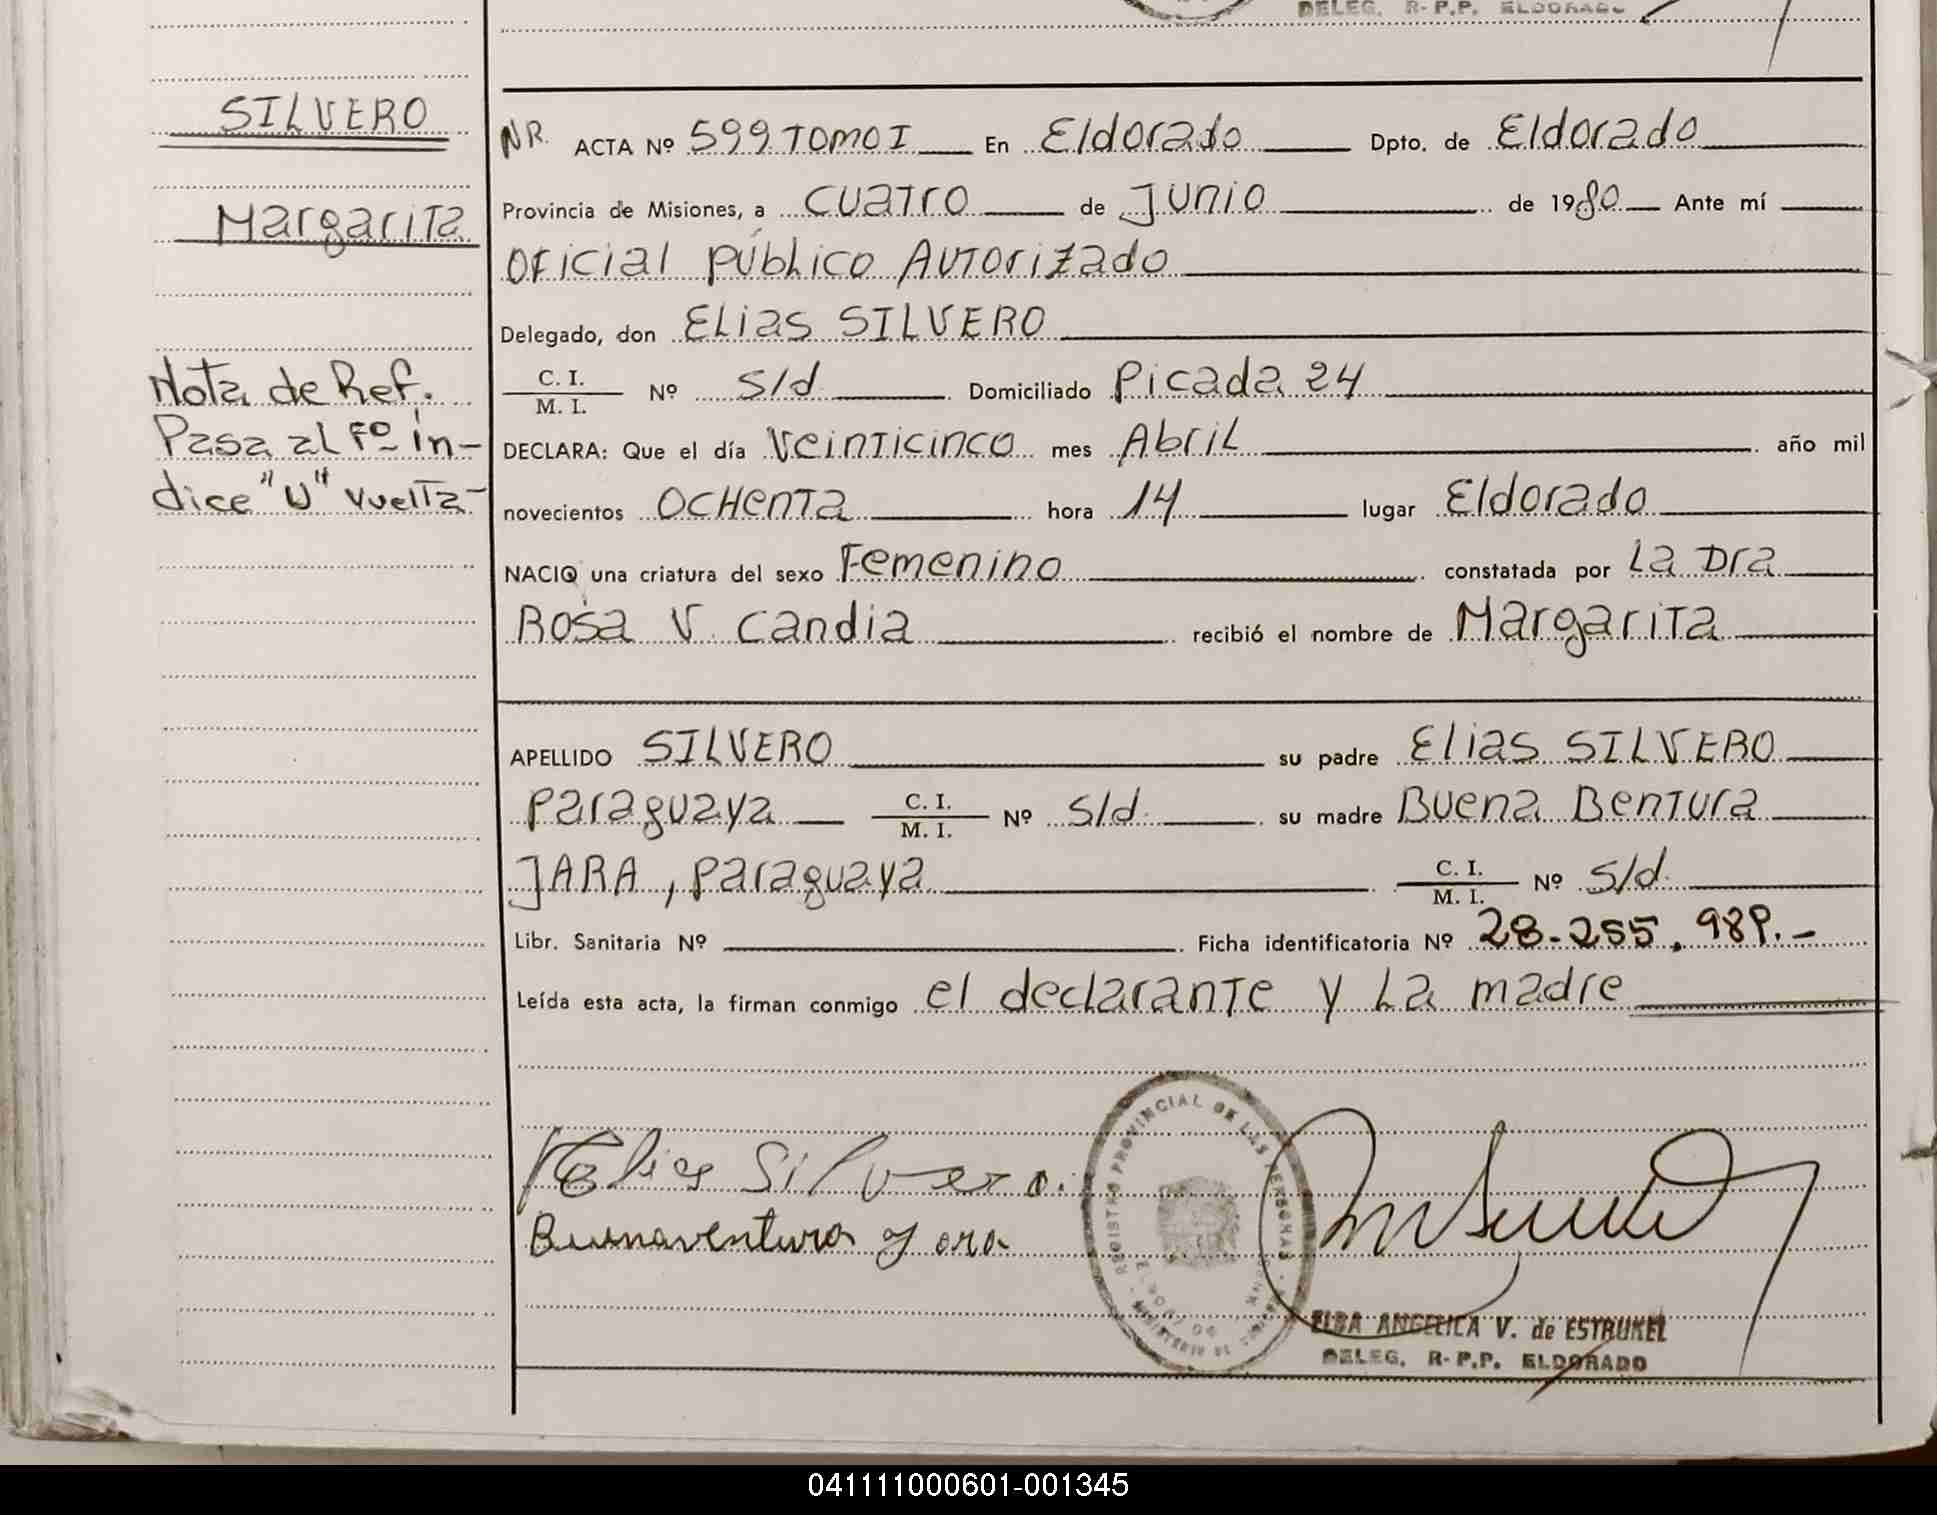 DELEG. R-P.P. ELDORADO
SILVERO
Margarita
Nota de Ref.
Pasa al Fº in-
dice "U" vuelta-
NR. ACTA Nº 599 TOMO I En Eldorado Dpto. de Eldorado
Provincia de Misiones, a cuatro de Junio de 1980 Ante mí
Oficial público Autorizado
Delegado, don Elias SILVERO
C. I. / M. I. Nº s/d. Domiciliado Picada 24
DECLARA: Que el día veinticinco mes Abril año mil
novecientos ochenta hora 14 lugar Eldorado
NACIO una criatura del sexo Femenino constatada por La Dra
Rosa V. Candia recibió el nombre de Margarita
APELLIDO SILVERO su padre Elias SILVERO
paraguaya C. I. / M. I. Nº s/d. su madre Buena Bentura
JARA, paraguaya C. I. / M. I. Nº s/d.
Libr. Sanitaria Nº Ficha identificatoria Nº 28-255.989.-
Leída esta acta, la firman conmigo el declarante y La madre
Elias Silvero.
Buenaventura Jara
REGISTRO PROVINCIAL DE LAS PERSONAS
ELBA ANGELICA V. de ESTRUKEL
DELEG. R-P.P. ELDORADO
041111000601-001345